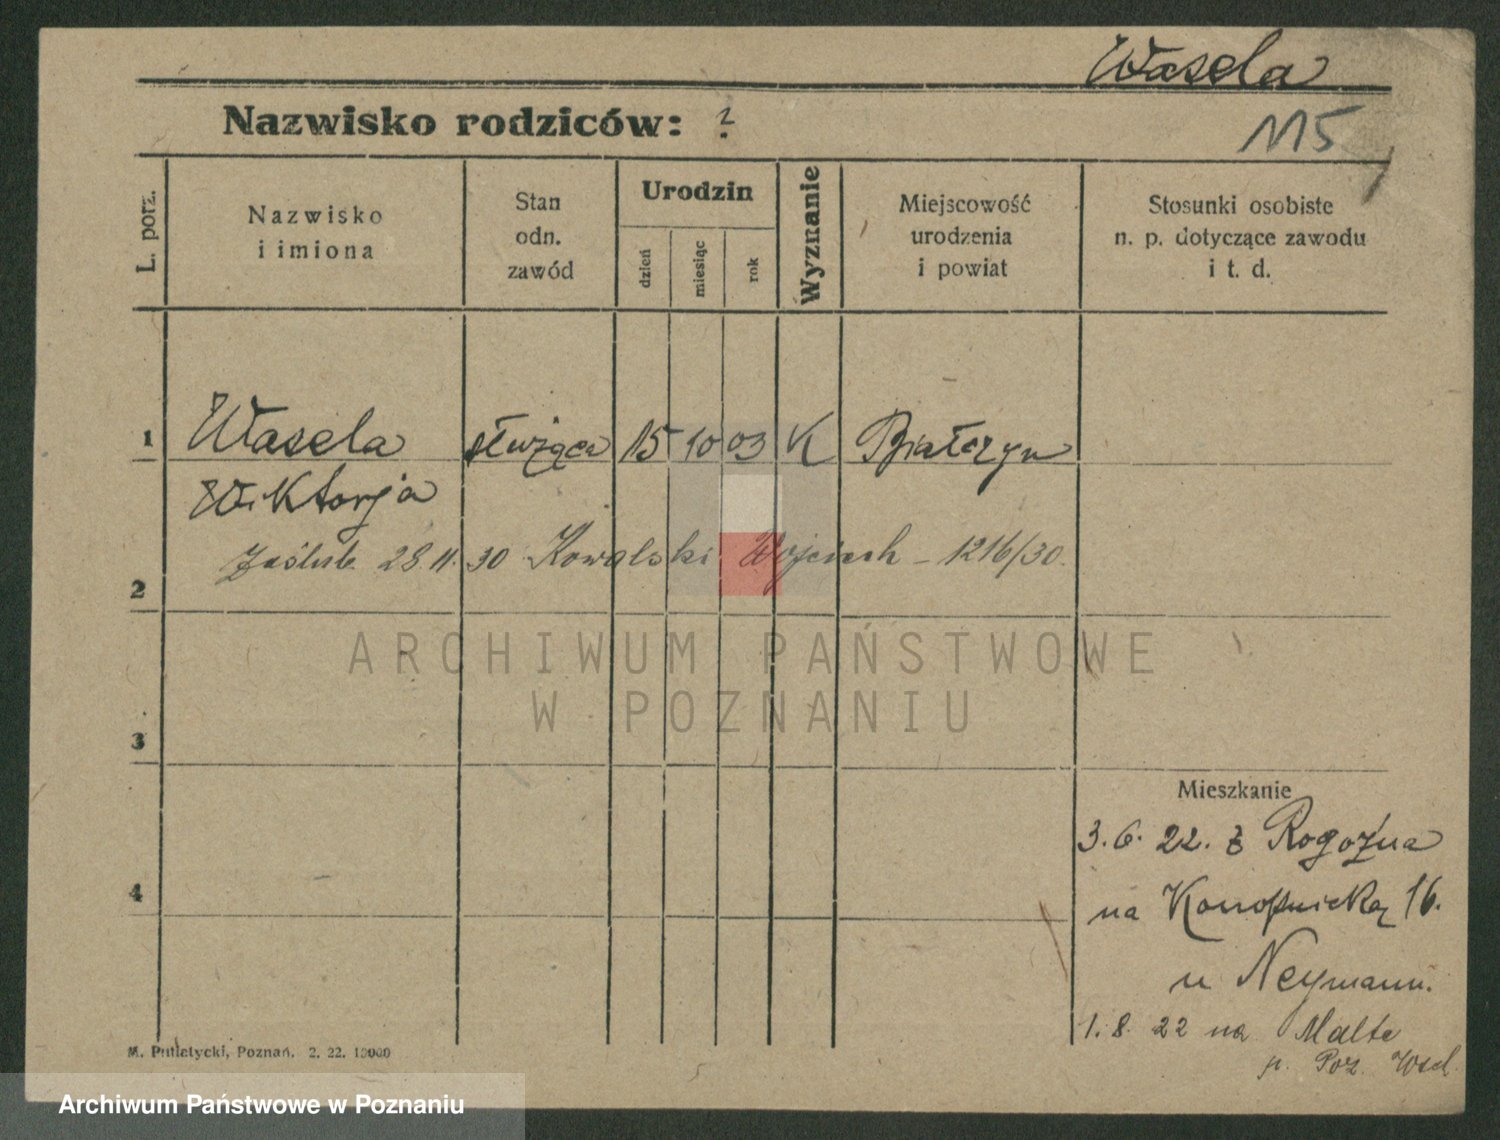 Wasela
Nazwisko rodziców: ?
115
L. porz.
Nazwisko
i imiona
Stan
odn.
zawód
Urodzin
dzień
miesiąc
rok
Wyznanie
Miejscowość
urodzenia
i powiat
Stosunki osobiste
n. p. dotyczące zawodu
i t. d.
1 Wasela służąca 15 10 03 K Białczyn
Wiktorja
Zaślub. 28.11.30 Kowalski Wojciech - 1216/30.
2
ARCHIWUM PAŃSTWOWE
W POZNANIU
3
Mieszkanie
3.6.22. z Rogoźna
4
na Konopnickiej 16.
u Neymann.
1.8.22 na Malte
p. Poz. Wsch.
M. Putiatycki, Poznań. 2. 22. 10000
Archiwum Państwowe w Poznaniu